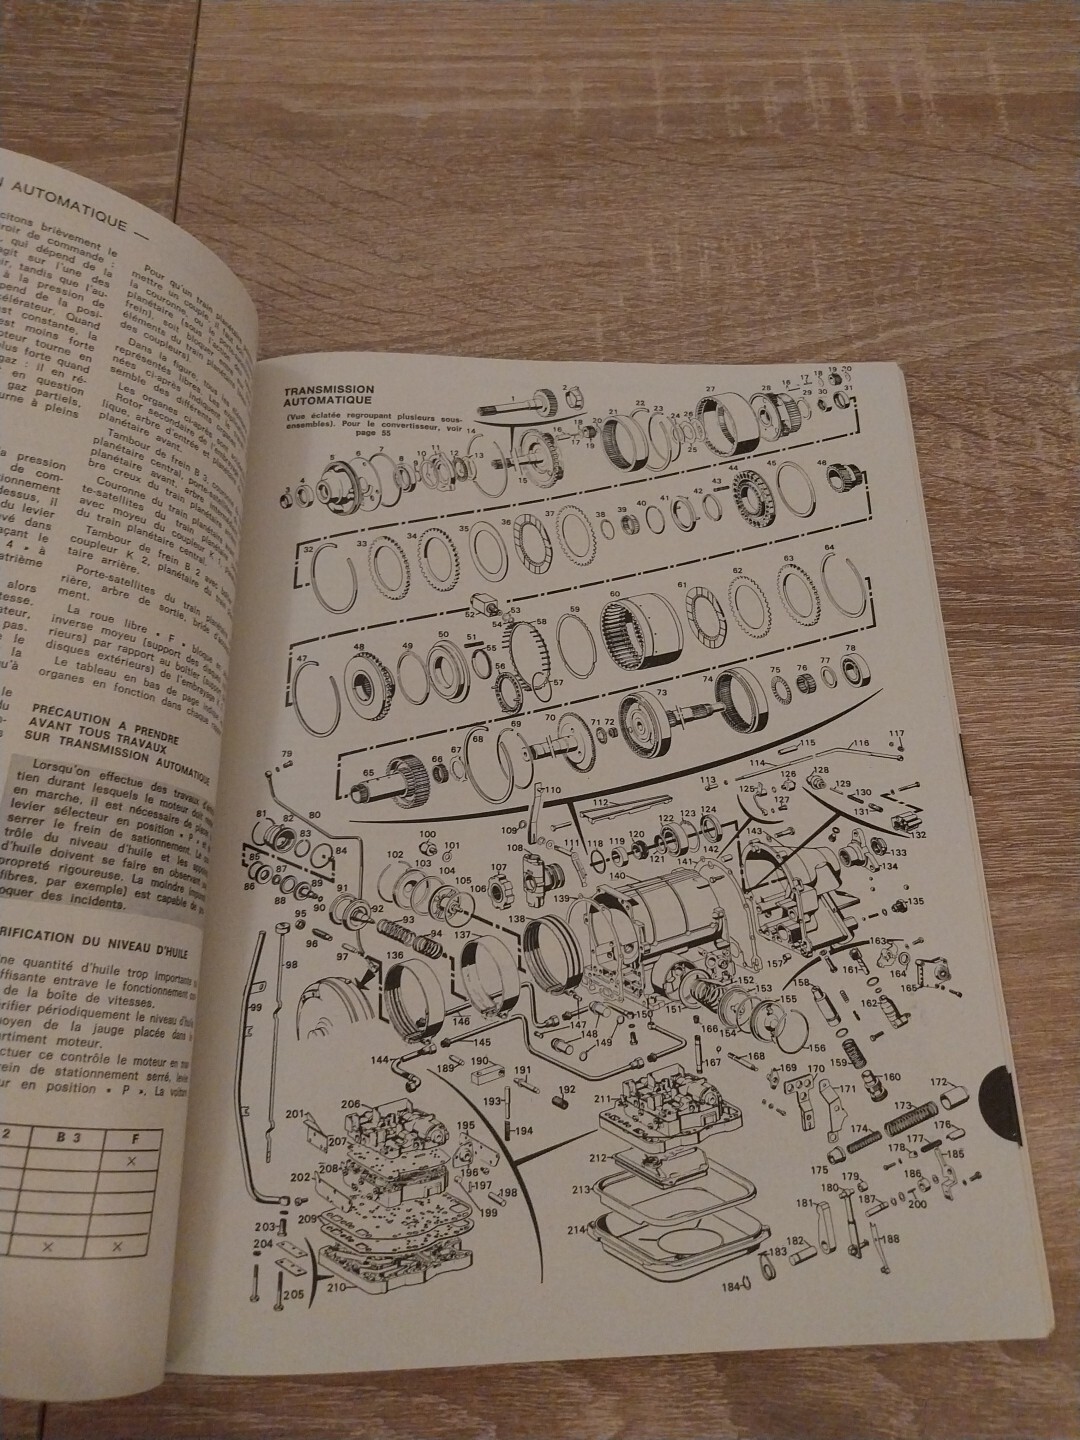 N AUTOMATIQUE —
citons brièvement le
iroir de commande ;
, qui dépend de la
agit sur l'une des
ir, tandis que l'au-
à la pression de
pend de la posi-
élérateur. Quand
est constante, la
est moins forte
oteur tourne en
lus forte quand
gaz : il en ré-
en question
gaz partiels,
urne à pleins
a pression
de com-
tionnement
dessus, il
du levier
vé dans
açant le
4 » à
atrième
alors
tesse.
ateur,
pas.
e le
la
qu'à
le
du
Pour qu'un train
mettre un couple, il faut
la couronne, ou le
planétaire (sous l'action du
frein), soit bloquer
éléments du train planétaire
des coupleurs).
Dans la figure, tous les
représentés libres. Les
nées ci-après indiquent
semble des différents organes
Les organes ci-après
Rotor secondaire de
lique, arbre d'entrée et
planétaire avant.
Tambour de frein B 3, couronne
planétaire central, porte-satellites
planétaire avant, arbre
bre creux du train planétaire
Couronne du train planétaire
te-satellites du train planétaire
avec moyeu du coupleur K 1,
du train planétaire central.
Tambour de frein B 2 avec
coupleur K 2, planétaire du train
taire arrière.
Porte-satellites du train
rière, arbre de sortie, bride
ment.
La roue libre « F » bloque en
inverse moyeu (support des disques
rieurs) par rapport au boîtier (support
disques extérieurs) de l'embrayage
Le tableau en bas de page indique
organes en fonction dans chaque
PRÉCAUTION A PRENDRE
AVANT TOUS TRAVAUX
SUR TRANSMISSION AUTOMATIQUE
Lorsqu'on effectue des travaux
tien durant lesquels le moteur doit
en marche, il est nécessaire de placer
levier sélecteur en position « P » et
serrer le frein de stationnement. Le
trôle du niveau d'huile et les
d'huile doivent se faire en observant
propreté rigoureuse. La moindre
libres, par exemple) est capable de
oquer des incidents.
RIFICATION DU NIVEAU D'HUILE
ne quantité d'huile trop importante
ffisante entrave le fonctionnement
de la boîte de vitesses.
érifier périodiquement le niveau d'huile
moyen de la jauge placée dans le
artiment moteur.
ctuer ce contrôle le moteur en
rein de stationnement serré, levier
ur en position « P ». La
2 B 3 F
×
× ×
TRANSMISSION
AUTOMATIQUE
(Vue éclatée regroupant plusieurs sous-
ensembles). Pour le convertisseur, voir
page 55
1 2 27 28 16 17 18 19 20
14 16 17 18 19 20 21 22 23 24 25 26 29 30 31
3 4 5 6 7 8 9 10 11 12 13 15
32 33 34 35 36 37 38 39 40 41 42 43 44 45 46
47 48 49 50 51 52 53 54 55 56 57 58 59 60 61 62 63 64
65 66 67 68 69 70 71 72 73 74 75 76 77 78
79 80 110 112 113 114 115 116 117
81 82 83 84 100 101 109 111 118 119 120 121 122 123 124 125 126 127 128 129 130 131 132
85 86 87 88 89 90 91 92 93 94 102 103 104 105 106 107 108 140 141 142 143 133 134
95 96 97 98 99 136 137 138 139 135
144 145 146 147 148 149 150 151 152 153 154 155 156 157 158 161 162 163 164 165
189 190 191 192 193 194 166 167 168 169 170 171 159 160 172 173 174 175 176 177 178
201 206 207 195 196 197 198 199 211 212 213 214 179 180 181 185 186 187 188 200
202 208 209 203 204 205 210 182 183 184